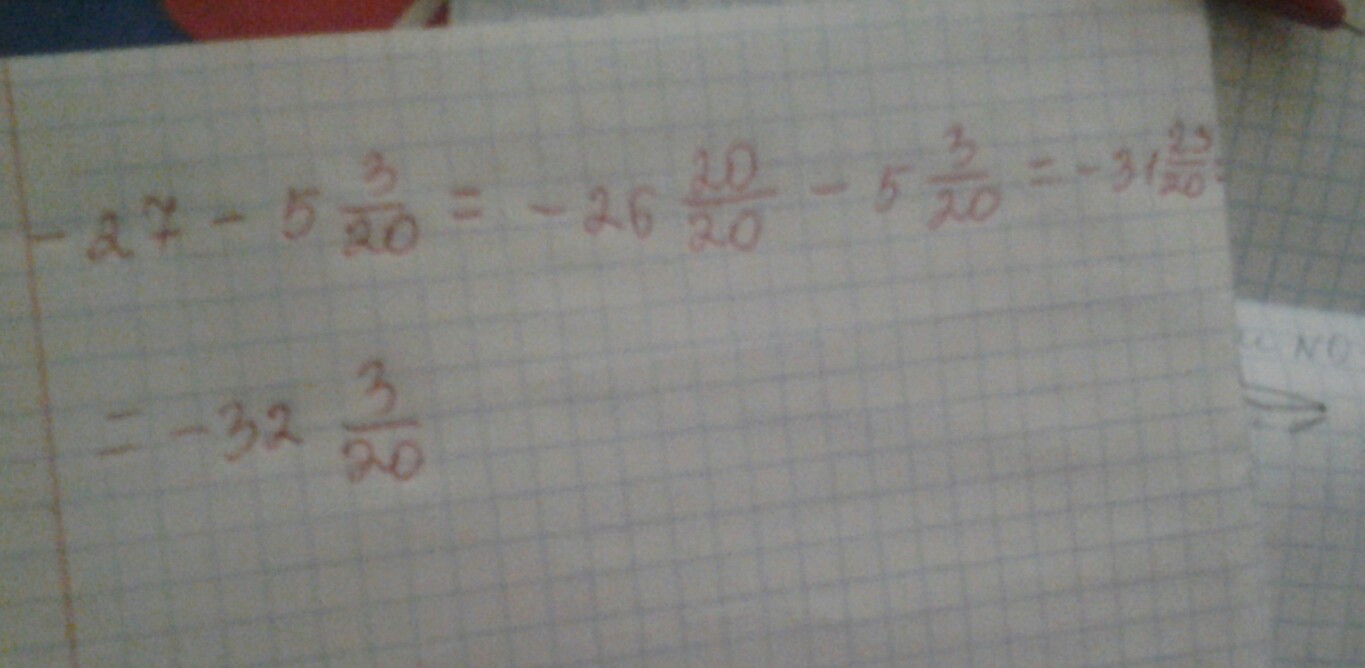 -27 - 5 3/20 = -26 20/20 - 5 3/20 = -31 23/20 =
= -32 3/20
NO